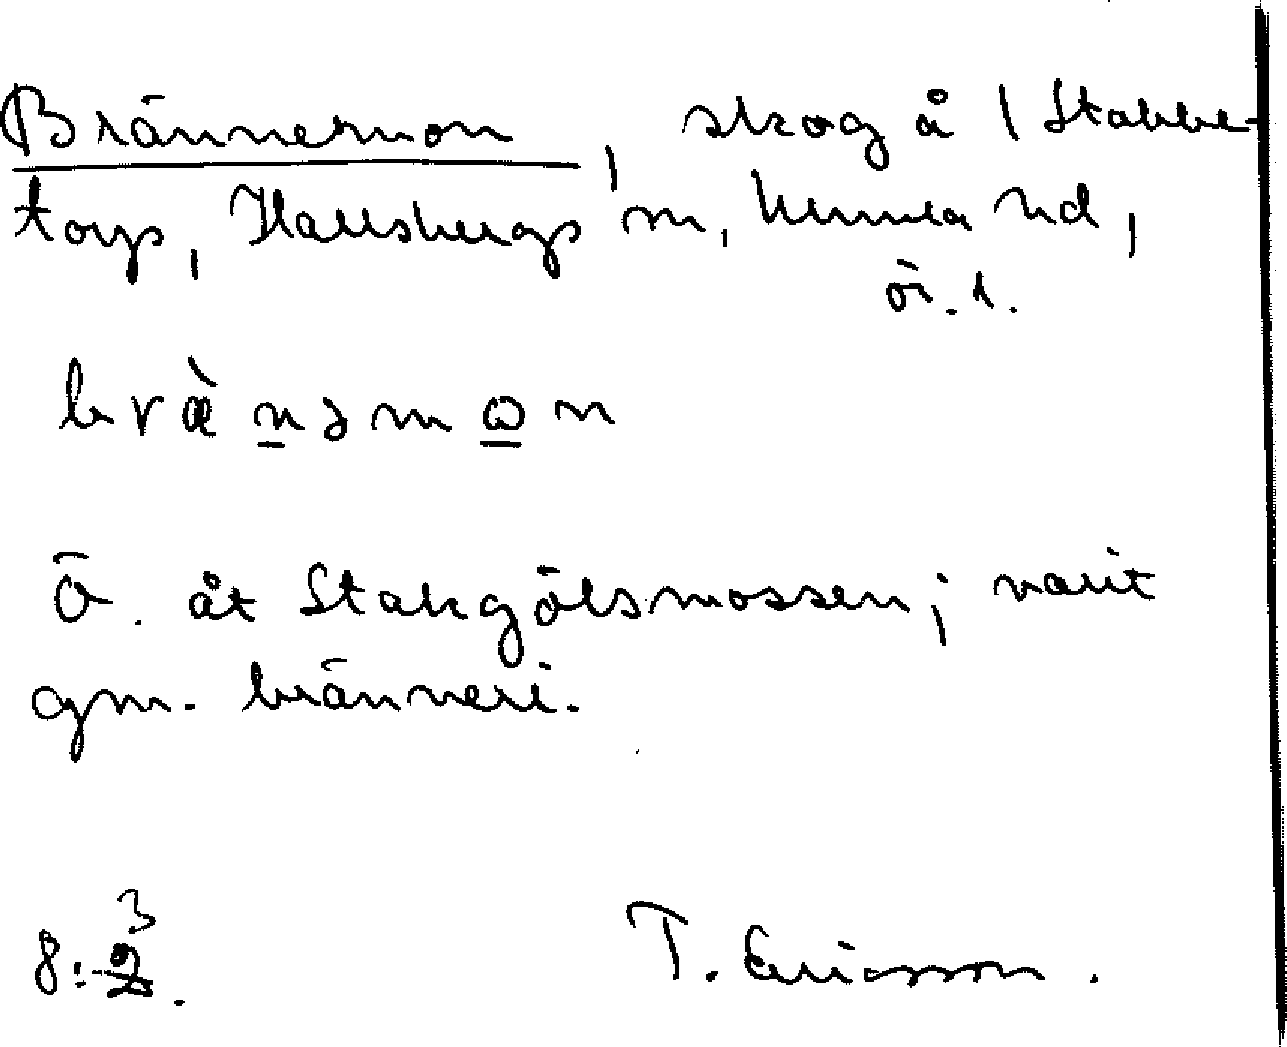 Brännemon, skog å 1 Stabbe-
torp, Hallsbergs sn, Kumla hd,
ör. l.
bræ̀nəmωn
Ö. åt Stakgölsmossen; varit
gm. bränneri.
3
8:2.
T. Ericsson.